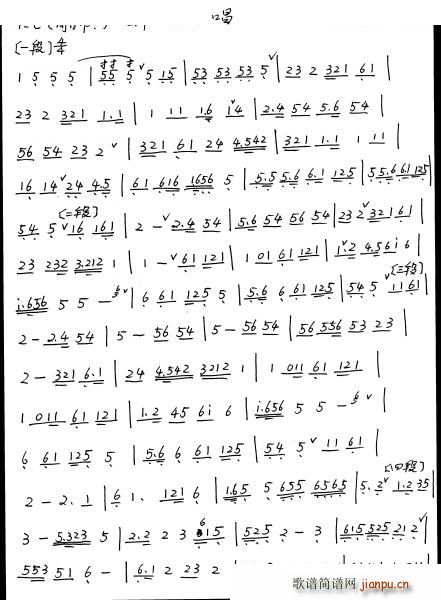 唱
〔一段〕
1 5 5 5 | 55 5 ˅5 15 | 53 53 53 5 ˅| 23 2 321 61 |
23 2 321 1.1 | 1 11 1.6 1˅4 | 2.4 54 5.6 54 |
56 54 23 2 ˅| 321 61 24 4.542 | 321 1.1 1 11 |
16 14 ˅24 4.5 | 61 616 1656 5 | 5.5 5.6 6.1 125 | 55.6 61 125 |
〔二段〕
54 5 ˅16 161 | 2 – ˅2.4 54 | 5.6 54 56 54 | 23 2 ˅321 61 |
23 232 3.212 1 | 1 – ˅61 121 | 1 01 61 121 | 1.2 4.56i 6 |
〔三段〕
i.656 5 5 – ˅| 6 61 125 5 | 5.6 6 61 125 | 54 5 ˅11 61 |
2 – 2.4 54 | 5 – 56 54 | 5 – 56 54 | 56 556 53 23 |
2 – 321 6.1 | 24 4.542 3212 1 | 1 011 61 121 |
1 011 61 121 | 1.2 45 6i 6 | i.656 5 5 – ˅|
6 61 125 5 | 5.6 6 61 125 | 54 5 ˅11 61 |
〔四段〕
2 – 2. 1 | 6 1. 121 6 | 1.65 5 655 6565 | 5. 2 ˅1.2 35 |
3 – 5.323 5 | 2.2 2 3 615 | 525 2 – 3 | 615 525 21 2 ˅|
553 51 6 – | 6.1 2 23 2
歌谱简谱网
jianpu.cn